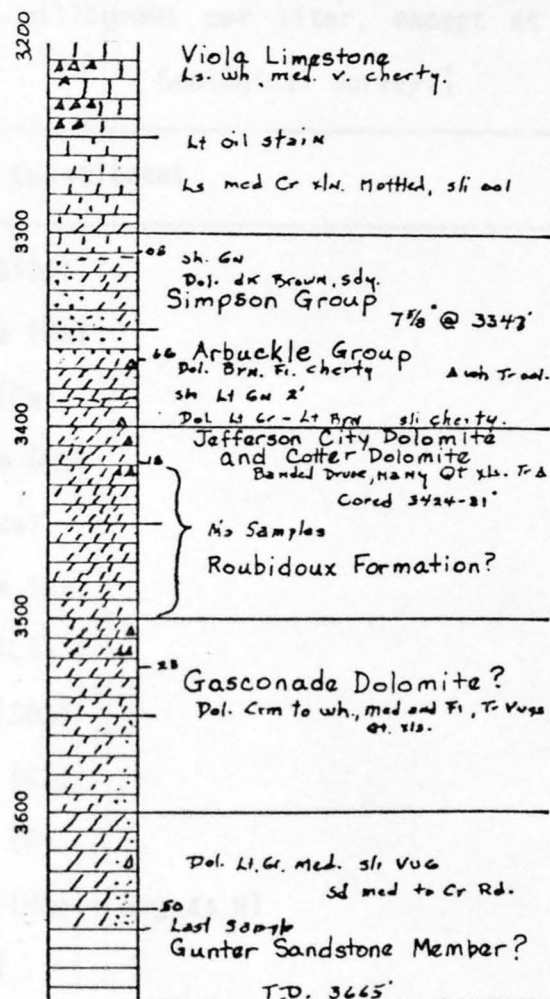 milligrams per liter, except as
3200
Viola Limestone
Ls. wh. med. v. cherty.
Lt Oil Stain
Ls med Cr xln. Mottled, sli ool
3300
05
sh. Gn
Dol. dk Brown, sdy.
Simpson Group
7 5/8" @ 3343'
66
Arbuckle Group
Dol. Brn. Fi. cherty
Δ wh Tr ool.
sh Lt Gn 2'
Dol Lt Gr - Lt Brn sli cherty.
3400
Jefferson City Dolomite
and Cotter Dolomite
18
Banded Druse, Many Qt xls. Tr Δ
Cored 3424-81'
No Samples
Roubidoux Formation?
3500
25
Gasconade Dolomite?
Dol. Crm to wh., med and Fi, Tr Vugs
Qt. xls.
3600
Dol. Lt. Gr. med. sli Vug
Sd med to Cr Rd.
50
Last Sample
Gunter Sandstone Member?
T.D. 3665'